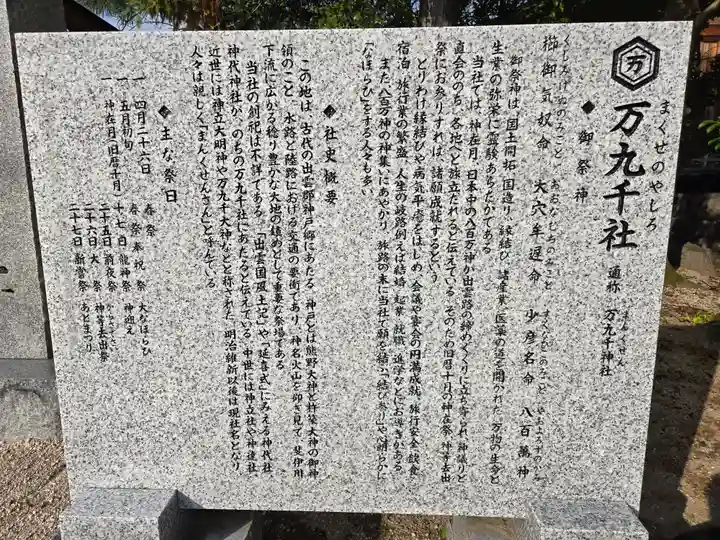 万
まくせのやしろ
万九千社 通称 万九千神社
まんくせん
◆御祭神
くしみけぬのみこと おおなむちのみこと すくなひこのみこと やおよろずのかみ
櫛御気奴命 大穴牟遅命 少彦名命 八百萬神
御祭神は、国土開拓、国造り、縁結び、諸産業、医薬の道を開かれた、万物の生命と
生業の弥栄に霊験あらたかである。
当社では、神在月、日本中の八百万神が出雲路の締めくくりに立ち寄られ、神議りと
直会ののち、各地へと旅立たれると伝えている。そのため旧暦十月の神在祭、神等去出
祭にお参りすれば、諸願成就するという。
とりわけ縁結びや病気平癒をはじめ、会議や宴会の円満成就、旅行安全、飲食
宿泊、旅行業の繁盛、人生の岐路、例えば結婚、起業、就職、進学などにお導きがある。
また八百万神の神集いにあやかり、旅路の末に当社で願を結ぶ「結び参り」や、請らかに
「なほらひ」をする人々も多い。
◆社史概要
この地は、古代の出雲郡神戸郷にあたる。神戸とは熊野大神と杵築大神の御神
領のこと。水路と陸路における交通の要衝であり、神名火山を仰ぎ見て、斐伊川
下流に広がる稔り豊かな大地の鎮めとして重要な祭場である。
当社の創祀は不詳である。「出雲国風土記」や「延喜式」にみえる神代社、
神代神社が、のちの万九千社にあたると伝えている。中世には神立社や神達社、
近世には神立大明神や万九千大神などと称された。明治維新以後は現社名となり、
人々は親しく「まんくせんさん」と呼んでいる。
◆主な祭日
一 四月二十六日 春祭 大なほらひ
一 五月初旬 春祭奉祝祭 神迎え
一 神在月(旧暦十月) 十七日 龍神祭
二十五日 前夜祭
二十六日 大祭 神等去出祭
からさでさい
二十七日 新嘗祭 あとまつり